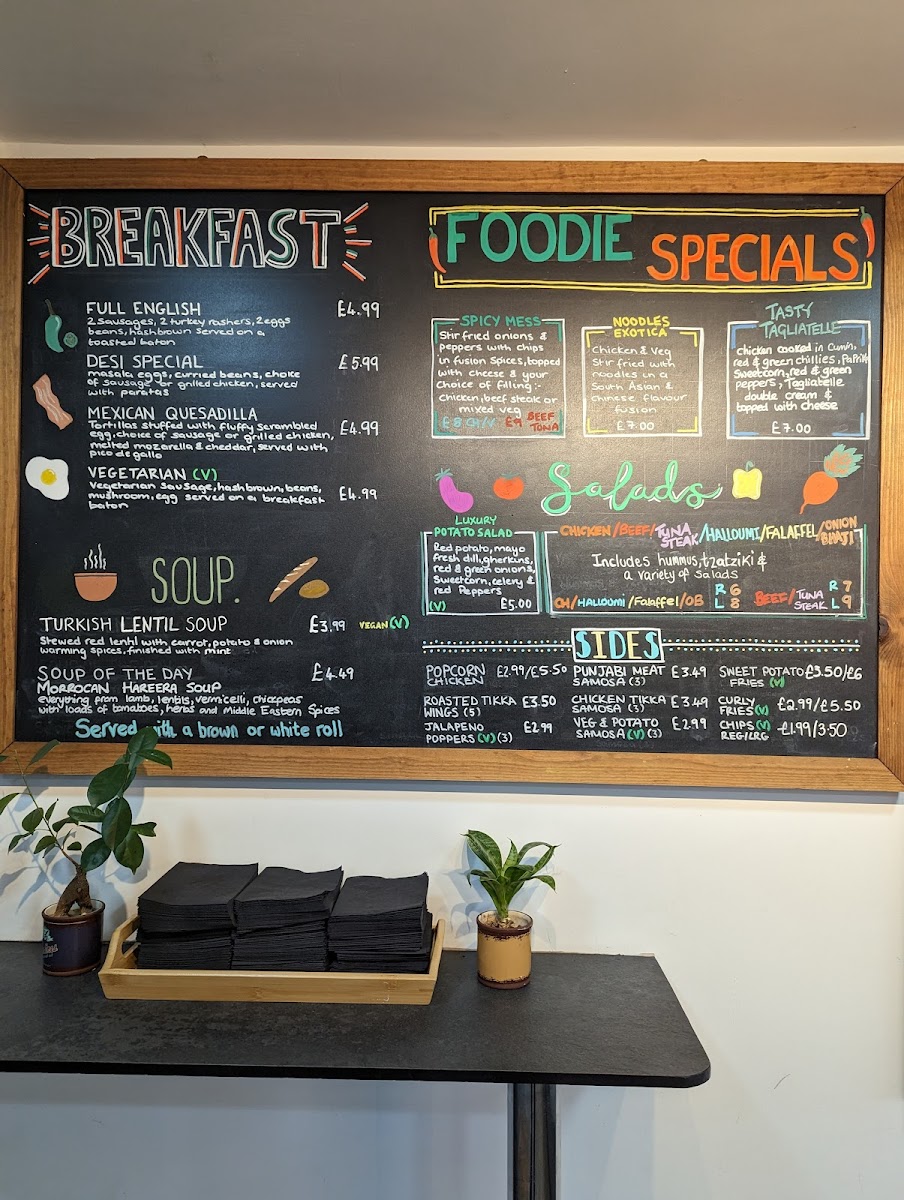 BREAKFAST
FULL ENGLISH £4.99
2 sausages, 2 turkey rashers, 2 eggs
beans, hashbrown served on a
toasted baton
DESI SPECIAL £5.99
masala eggs, curried beans, choice
of sausage or grilled chicken, served
with paratas
MEXICAN QUESADILLA
Tortillas stuffed with fluffy scrambled £4.99
egg, choice of sausage or grilled chicken,
melted mozarella & cheddar, served with
pico de gallo
VEGETARIAN (V)
Vegetarian sausage, hashbrown, beans,
mushroom, egg served on a breakfast £4.99
baton
SOUP.
TURKISH LENTIL SOUP £3.99 VEGAN (V)
Stewed red lentil with carrot, potato & onion
warming spices, finished with mint
SOUP OF THE DAY £4.49
MORROCAN HAREERA SOUP
everything from lamb, lentils, vermicelli, chickpeas
with loads of tomatoes, herbs and Middle Eastern Spices
Served with a brown or white roll
FOODIE SPECIALS
SPICY MESS
Stir fried onions &
peppers with chips
in fusion spices, topped
with cheese & your
choice of filling:-
chicken, beef steak or
mixed veg
£8 CH/V £9 BEEF
TUNA
NOODLES
EXOTICA
Chicken & Veg
Stir fried with
noodles in a
South Asian &
chinese flavour
fusion
£7.00
TASTY
TAGLIATELLE
chicken cooked in Cumin,
red & green chillies, Paprika
Sweetcorn, red & green
peppers, Tagliatelle
double cream &
topped with cheese
£7.00
Salads
LUXURY
POTATO SALAD
Red potato, mayo
fresh dill, gherkins,
red & green onions,
Sweetcorn, celery &
red Peppers
(V) £5.00
CHICKEN/BEEF/TUNA STEAK/HALLOUMI/FALAFFEL/ONION BHAJI
Includes hummus, tzatziki &
a variety of salads
CH/HALLOUMI/Falaffel/OB R 6 L 8 BEEF/TUNA STEAK R 7 L 9
SIDES
POPCORN CHICKEN £2.99/£5.50
ROASTED TIKKA WINGS (5) £3.50
JALAPENO POPPERS (V) (3) £2.99
PUNJABI MEAT SAMOSA (3) £3.49
CHICKEN TIKKA SAMOSA (3) £3.49
VEG & POTATO SAMOSA (V) (3) £2.99
SWEET POTATO FRIES (V) £3.50/£6
CURLY FRIES (V) £2.99/£5.50
CHIPS (V) REG/LRG £1.99/3.50